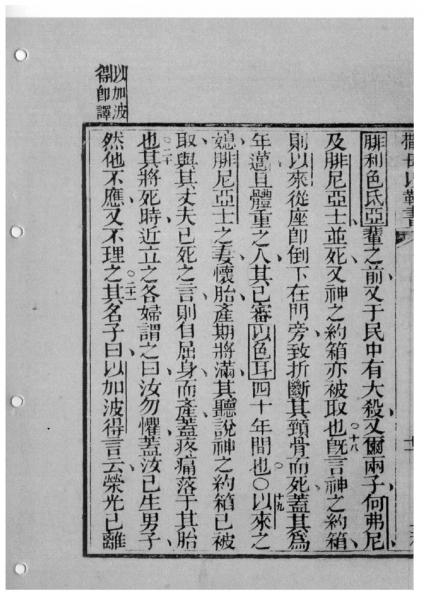 腓利色氏亞輩之前又于民中有大殺又爾兩子何弗尼
及腓尼亞士並死又神之約箱亦被取也十八旣言神之約箱
則以來從座卽倒下在門旁致折斷其頸骨而死蓋其爲
年邁且體重之人其已審以色耳四十年間也○十九以來之
媳腓尼亞士之妻懷胎產期將滿其聽說神之約箱已被
取與其丈夫已死之言則自屈身而產蓋疼痛落于其胎
也二十其將死時近立之各婦謂之曰汝勿懼蓋汝已生男子
然他不應又不理之二十一其名子曰以加波得言云榮光已離
以加波
得卽譯